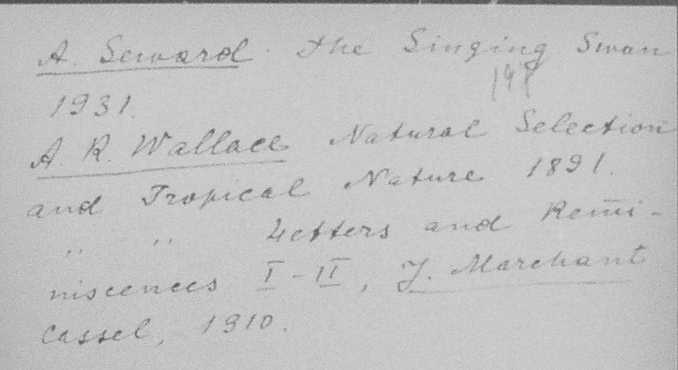 A. Seward. The Singing Swan
1931.
A. R. Wallace Natural Selection
and Tropical Nature 1891.
" " Letters and Remi-
niscences I-II, J. Marchant
Cassel, 1910.